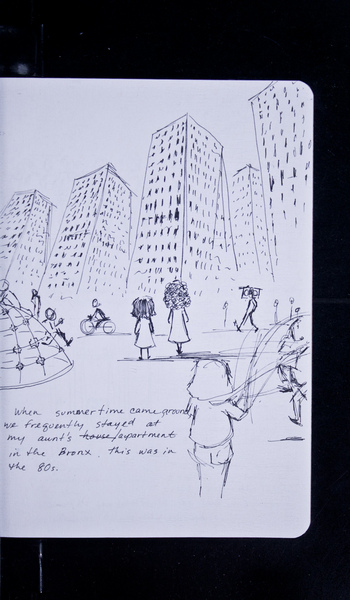 When summertime came ground
we frequently stayed at
my aunt's house/apartment
in the Bronx. This was in
the 80s.